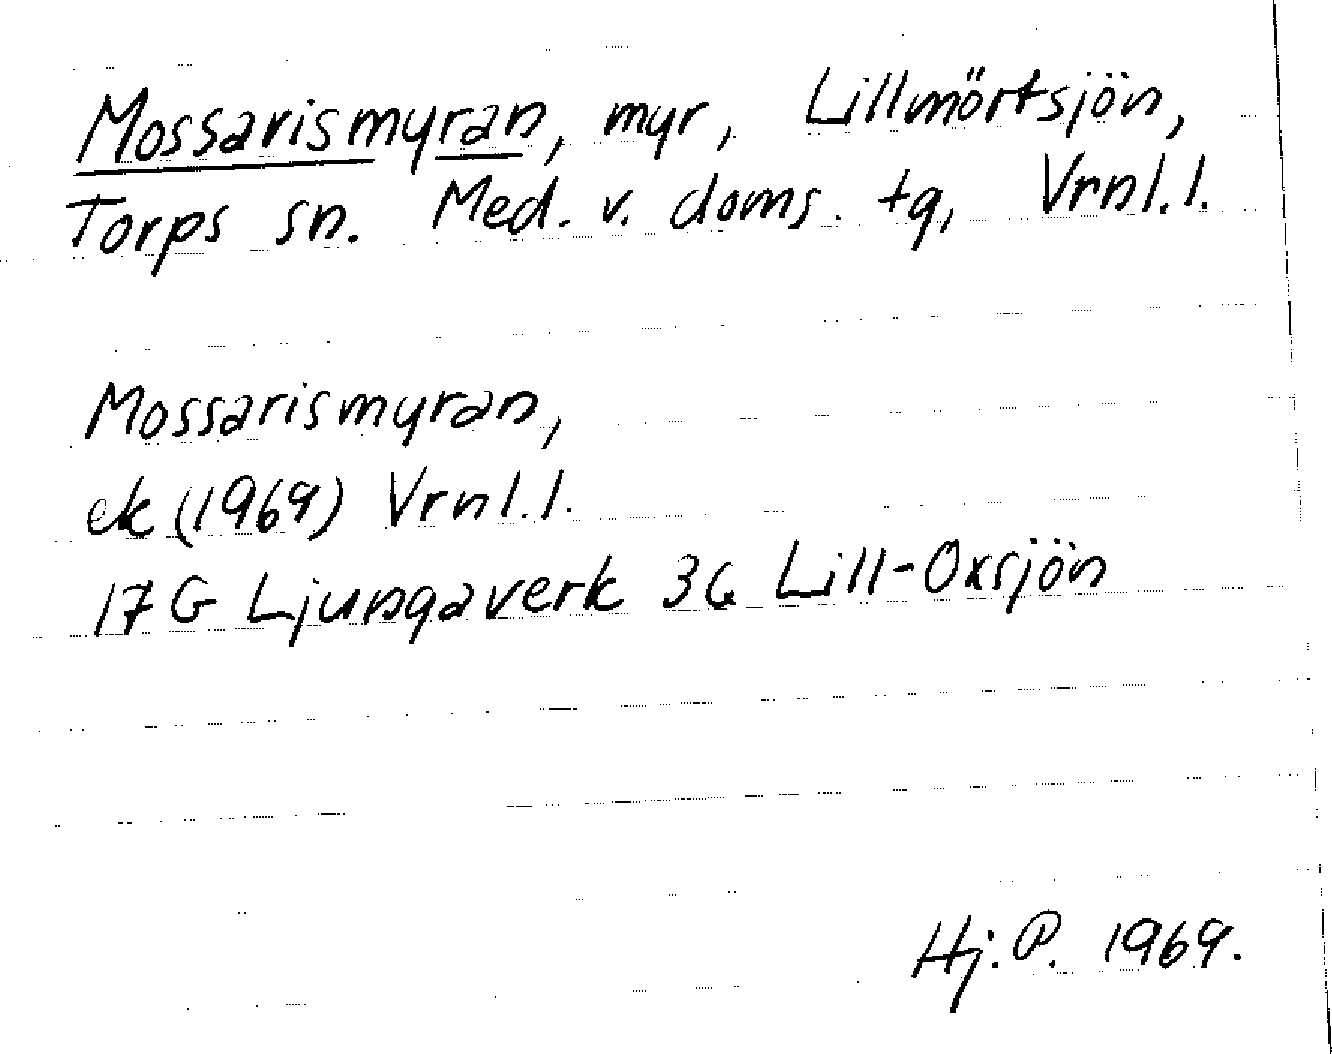 Mossarismyran, myr, Lillmörtsjön,
Torps sn. Med. v. doms. tg, Vrnl.l.
Mossarismyran,
ek (1969) Vrnl.l.
17G Ljungaverk 3G Lill-Oxsjön
Hj.P. 1969.